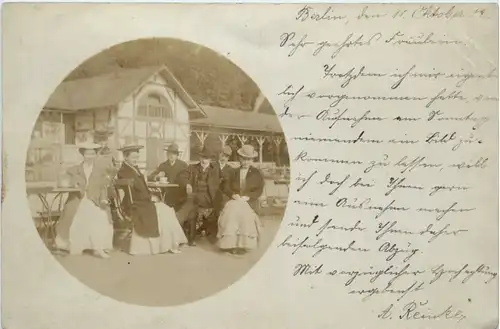 Berlin, den 11. Oktober
Sehr geehrtes Fräulein
Trotzdem ich mir eigent-
lich vorgenommen hatte, von
der Aufnahme am Sonntag
niemandem ein Bild zu-
kommen zu lassen, will
ich doch bei Ihnen gern
eine Ausnahme machen
und sende Ihnen daher
beifolgenden Abzug.
Mit vorzüglicher Hochachtung
ergebenst
A. Reinke,